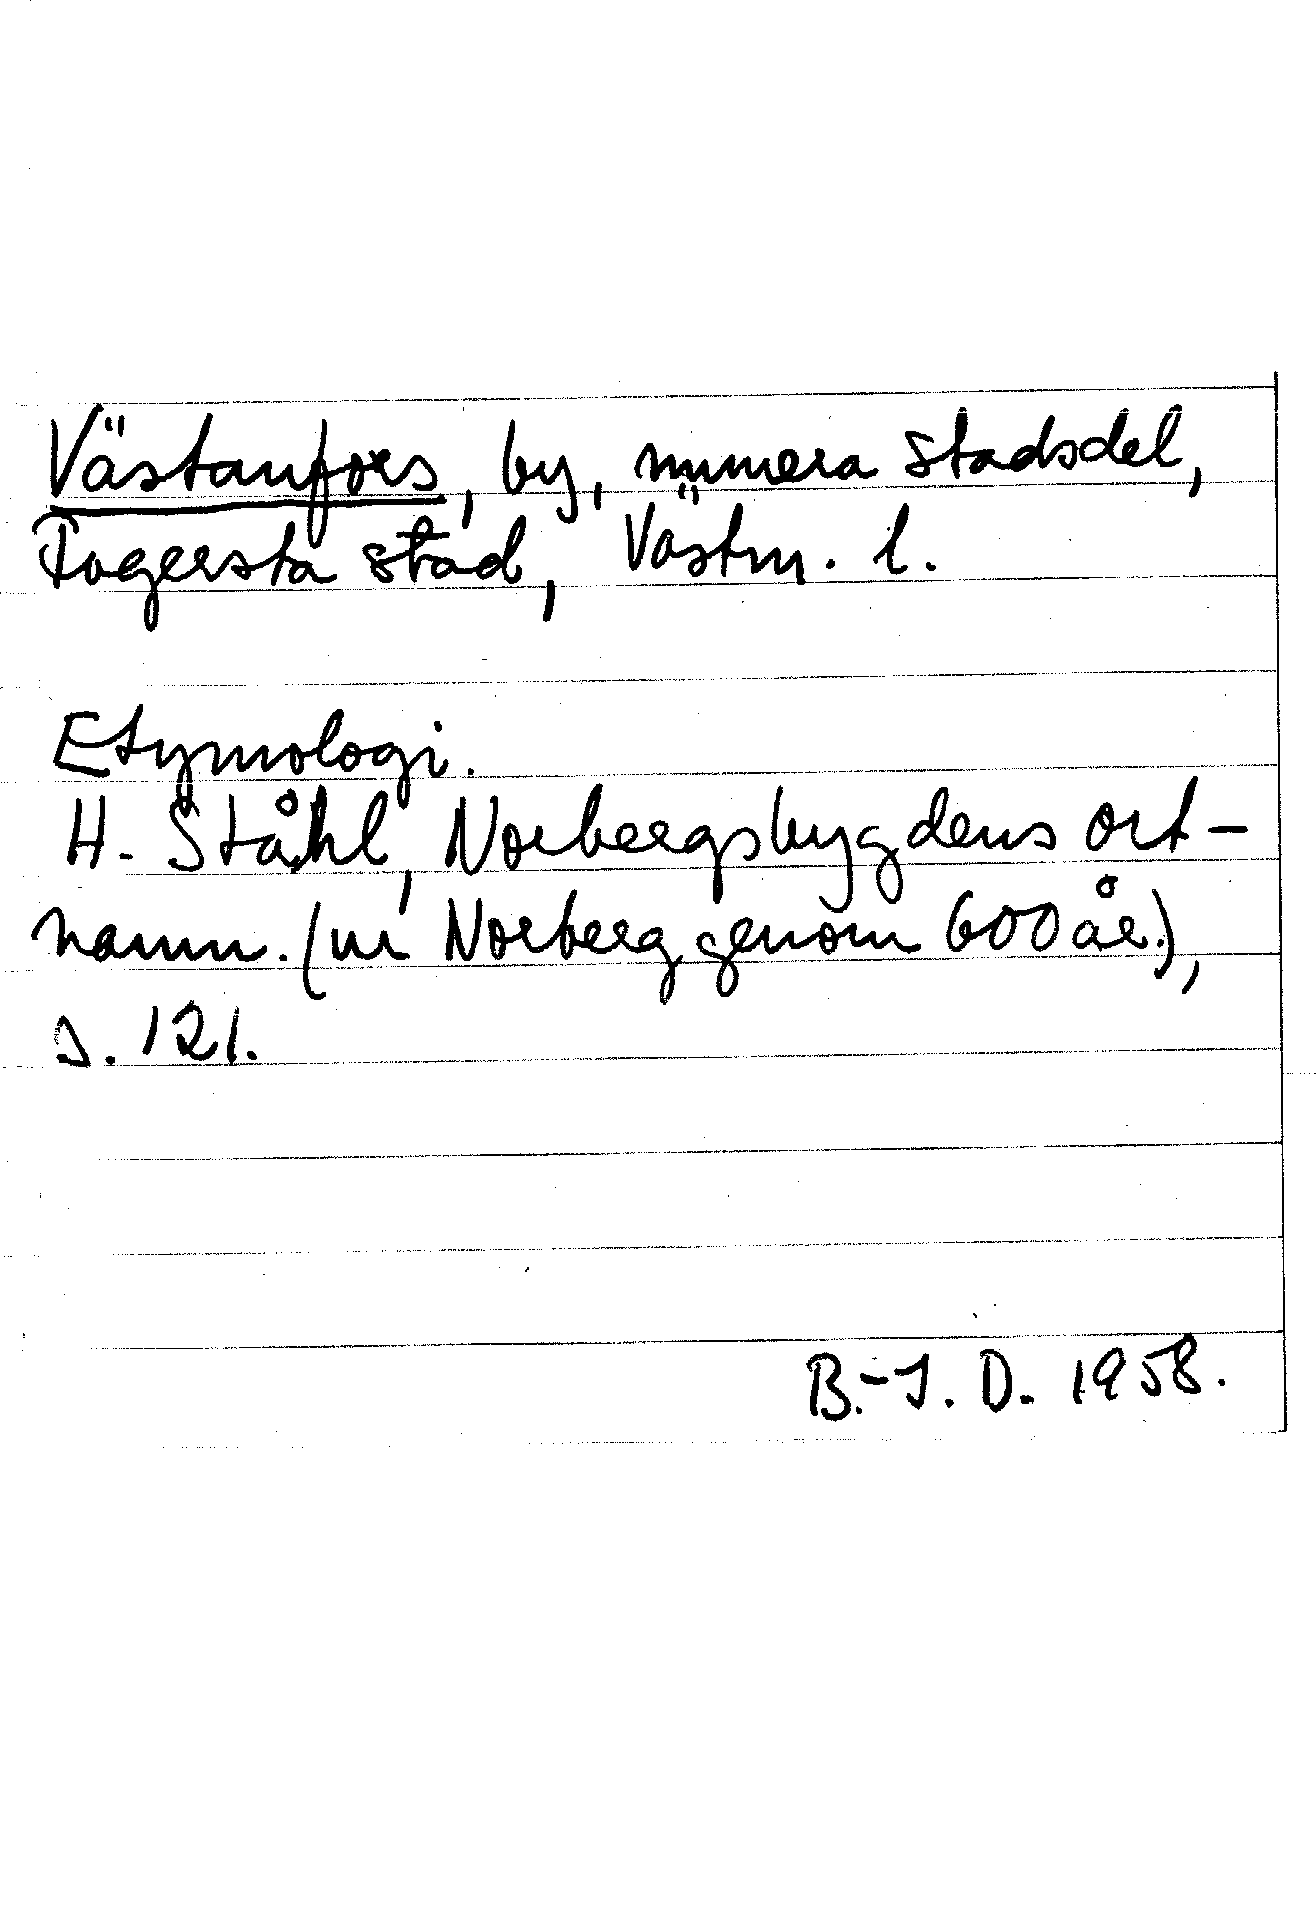 Västanfors, by, numera stadsdel,
Fagersta stad, Västm. l.
Etymologi.
H. Ståhl, Norbergsbygdens ort-
namn. (ur Norberg genom 600 år.),
s. 121.
B.-I. D. 1958.